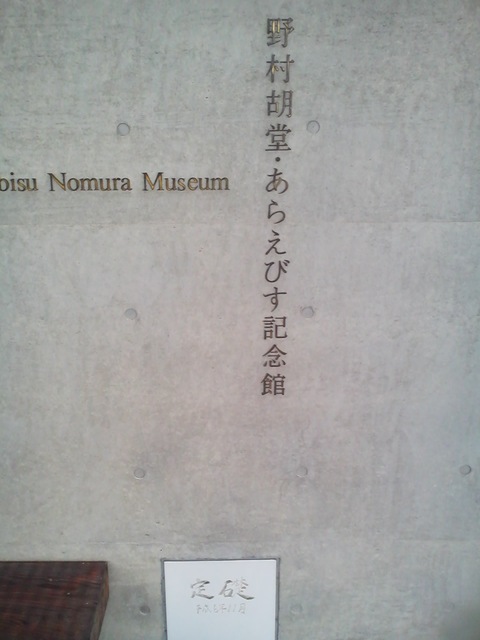 野村胡堂・あらえびす記念館
oisu Nomura Museum
定礎